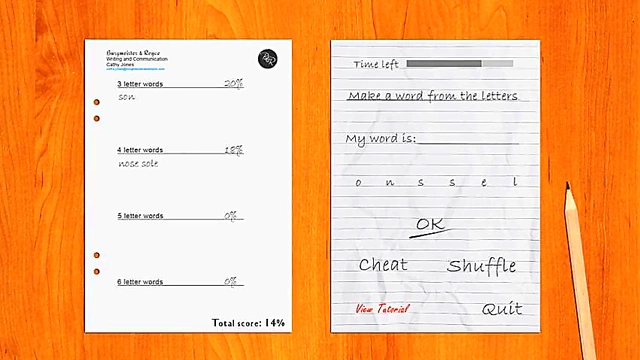 Burgmeister & Royce
Writing and Communication
Cathy Jones
3 letter words 20%
son
4 letter words 18%
nose sole
5 letter words 0%
6 letter words 0%
Total score: 14%
Time left
Make a word from the letters
My word is:
o n s s e l
OK
Cheat Shuffle
View Tutorial Quit